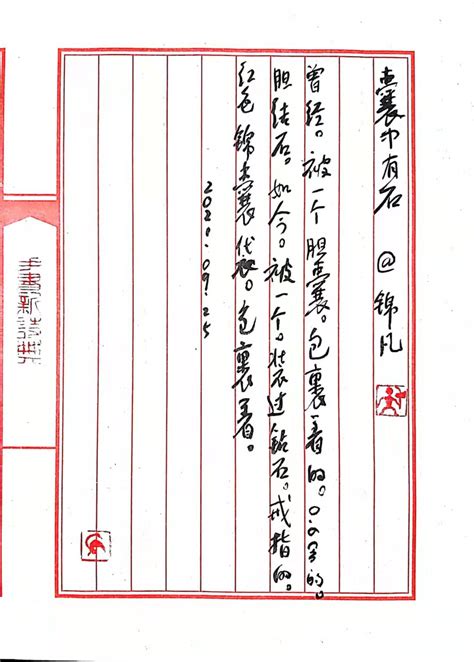 囊中有石 @锦凡
曾经。被一个胆囊。包裹着的。0.9克的。
胆结石。如今。被一个。装过钻石。戒指的。
红色锦囊袋。包裹着。
2021.09.25
手书新诗典